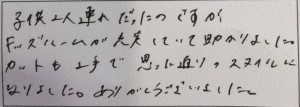 子供2人連れだったのですが
キッズルームが充実していて助かりました
カットも上手で思った通りのスタイルに
なりました。ありがとうございました